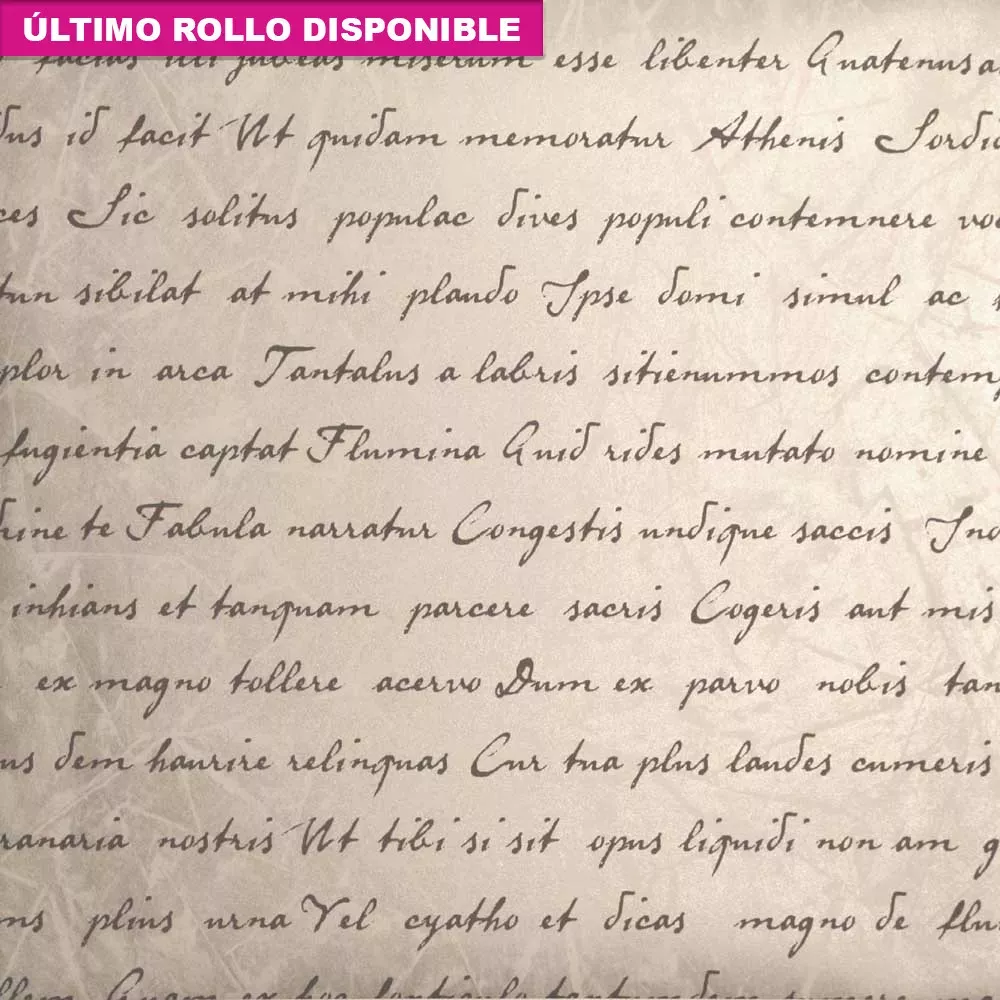 ÚLTIMO ROLLO DISPONIBLE
facias illi jubeas miserum esse libenter Quatenus
id facit Ut quidam memoratur Athenis
Sic solitus populac dives populi contemnere
sibilat at mihi plaudo Ipse domi simul ac
in arca Tantalus a labris sitienummos
fugientia captat Flumina Quid rides mutato nomine
te Fabula narratur Congestis undique saccis
inhians et tanquam parcere sacris Cogeris aut
ex magno tollere acervo Dum ex parvo nobis
dem haurire relinquas Cur tua plus laudes cumeris
nostris Ut tibi si sit opus liquidi non am
plius urna Vel cyatho et dicas magno de